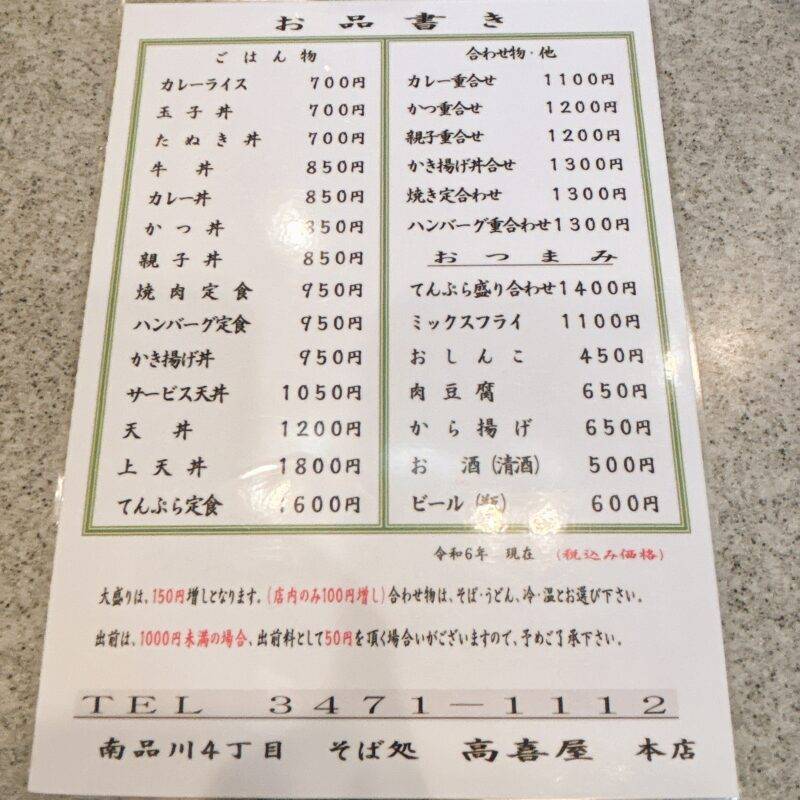 お品書き
ごはん物
カレーライス 700円
玉子丼 700円
たぬき丼 700円
牛丼 850円
カレー丼 850円
かつ丼 850円
親子丼 850円
焼肉定食 950円
ハンバーグ定食 950円
かき揚げ丼 950円
サービス天丼 1050円
天丼 1200円
上天丼 1800円
てんぷら定食 1600円
合わせ物・他
カレー重合せ 1100円
かつ重合せ 1200円
親子重合せ 1200円
かき揚げ丼合せ 1300円
焼き定合わせ 1300円
ハンバーグ重合わせ 1300円
おつまみ
てんぷら盛り合わせ 1400円
ミックスフライ 1100円
おしんこ 450円
肉豆腐 650円
から揚げ 650円
お酒(清酒) 500円
ビール(瓶) 600円
令和6年 現在 (税込み価格)
大盛りは、150円増しとなります。(店内のみ100円増し)合わせ物は、そば・うどん、冷・温とお選び下さい。
出前は、1000円未満の場合、出前料として50円を頂く場合いがございますので、予めご了承下さい。
TEL 3471-1112
南品川4丁目 そば処 高喜屋 本店